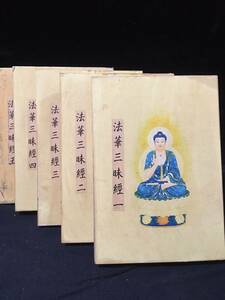 法華三昧經一
法華三昧經二
法華三昧經三
法華三昧經四
法華三昧經五